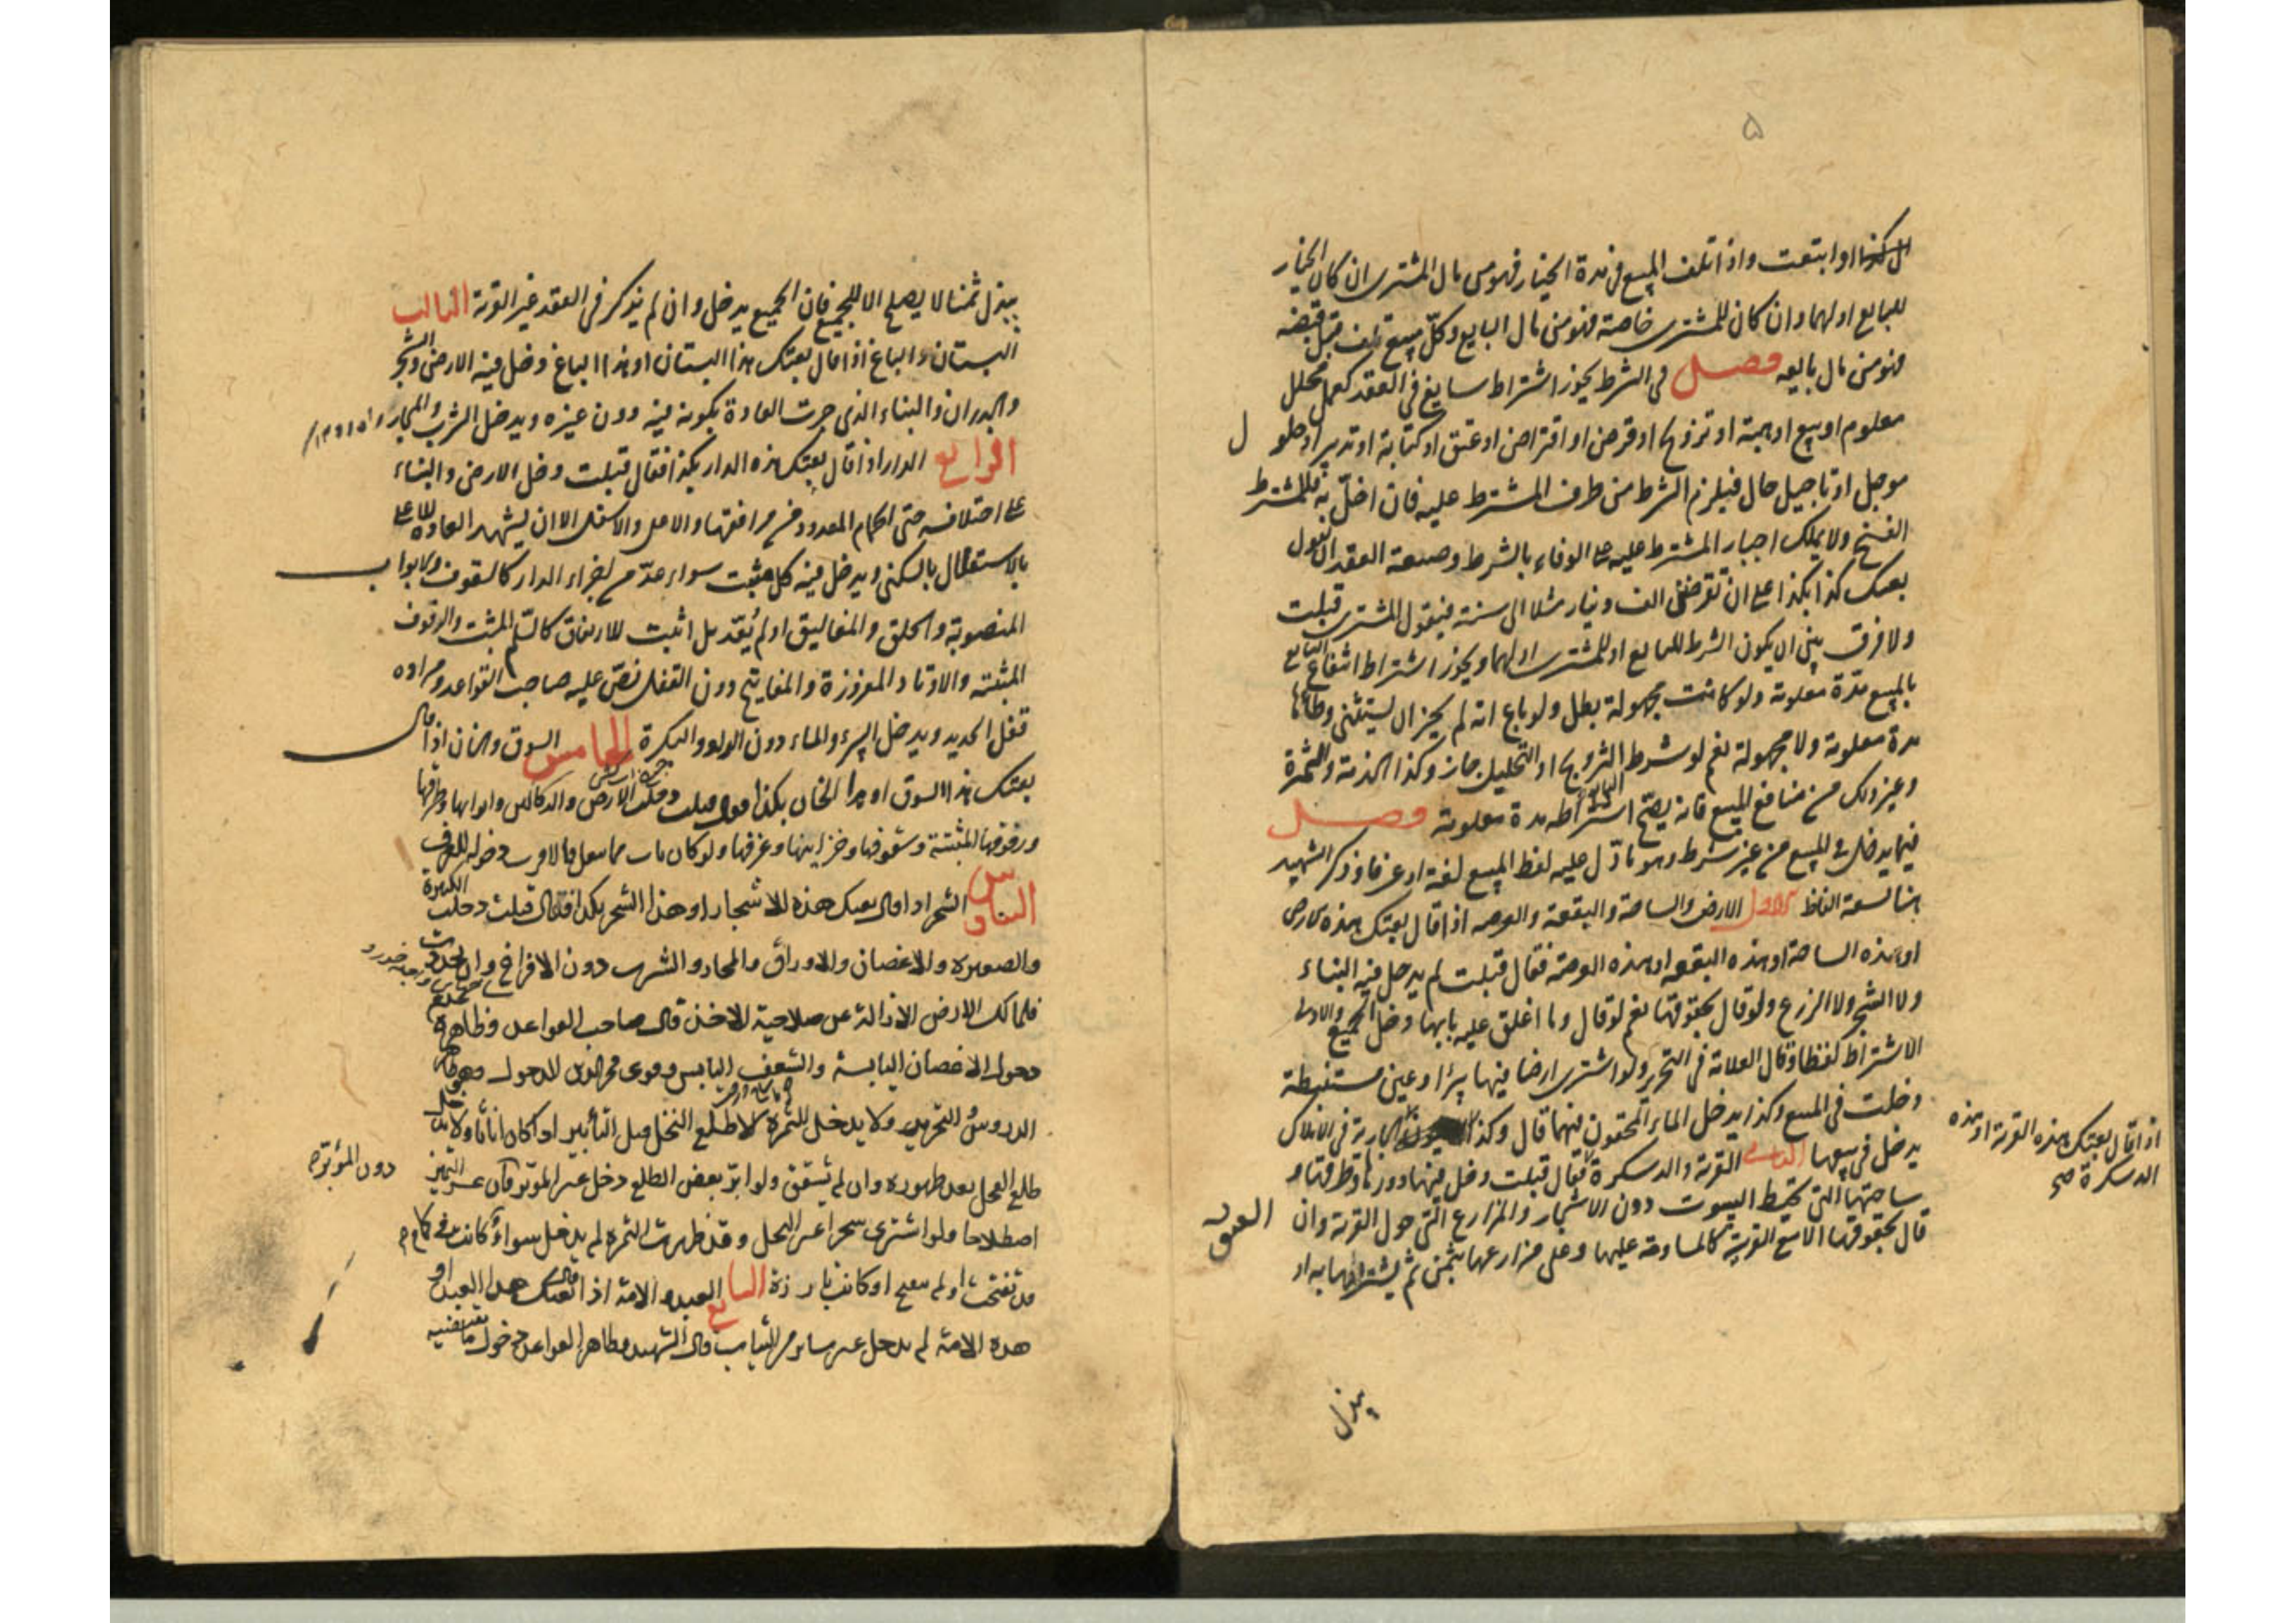 ۵
او ابتعت واذا تلف المبيع فى مدة الخيار فهو من مال المشترى ان كان الخيار
للبايع او لهما وان كان للمشترى خاصة فهو من مال البايع وكل مبيع تلف قبل قبضه
فهو من مال بايعه فصل فى الشرط يجوز اشتراط سايغ فى العقد كعمل محلل
معلوم او بيع او هبة او تزويج او قرض او اقتراض او عتق او كتابة او تدبير او حلول
موجل او تاجيل حال فيلزم الشرط من طرف المشترط عليه فان اخل به فللمشترط
الفسخ ولا يملك اجبار المشترط عليه على الوفاء بالشرط وصيغة العقد ان يقول
بعتك كذا بكذا على ان تقرضنى الف دينار مثلا الى سنة فيقول المشترى قبلت
ولا فرق بين ان يكون الشرط للبايع او للمشترى او لهما ويجوز اشتراط انتفاع البايع
بالمبيع مدة معلومة ولو كانت مجهولة بطل ولو باع امة لم يجز ان يستثنى وطأها
مدة معلومة ولا مجهولة نعم لو شرط التزويج او التحليل جاز وكذا الخدمة والثمرة
وغير ذلك من منافع المبيع فانه يصح اشتراطه مدة معلومة فصل
فيما يدخل فى المبيع من غير شرط وهو ما دل عليه لفظ المبيع لغة او عرفا وذكر الشهيد
هنا سبعة الفاظ الاول الارض والساحة والبقعة والعرصه اذا قال بعتك هذه الارض
او هذه الساحة او هذه البقعه او هذه العرصة فقال قبلت لم يدخل فيه البناء
ولا الشجر ولا الزرع ولو قال بحقوقها نعم لو قال وما اغلق عليه بابها دخل الجميع والاولى
الاشتراط لفظا وقال العلامة فى التحرير ولو اشترى ارضا فيها بئرا وعين مستنبطة
دخلت فى المبيع وكذا يدخل الماء المحقون فيهما قال وكذا العيون الجارية فى الاملاك
يدخل فى بيعها الثانى القرية والدسكرة فقال قبلت دخل فيها دورها وطرقها و
اذا قال بعتك هذه القرية او هذه
الدسكرة صح
ساحتها التى تحيط البيوت دون الاشجار والمزارع التى حول القرية وان
قال بحقوقها الا مع القرينة كالمساومة عليها وعلى مزارعها بثمن ثم يشتراها به او
يبذل
يبذل ثمنا لا يصلح الا للجميع فان الجميع يدخل وان لم يذكر فى العقد غير القرية الثالث
البستان والباغ اذا قال بعتك هذا البستان او هذا الباغ دخل فيه الارض والشجر
والجدران والبناء الذى جرت العادة بكونه فيه دون غيره ويدخل الشرب والمجاز
الرابع الدار اذا قال بعتك هذه الدار بكذا فقال قبلت دخل الارض والبناء
على اختلافه حتى الحمام المعدود من مرافقها والاعلى والاسفل الا ان يشهد العادة للاعلى
بالاستقلال بالسكنى ويدخل فيه كل مثبت سواء عد من اجزاء الدار كالسقوف والابواب
المنصوبة والحلق والمغاليق او لم يعد بل اثبت للارتفاق كالسلم المثبت والرفوف
المثبتة والاوتاد المغروزة والمفاتيح دون القفل نص عليه صاحب القواعد ومراده
قفل الحديد ويدخل البئر والماء دون الدلو والبكرة الخامس السوق والخان اذا قال
بعتك هذا السوق او هذا الخان بكذا فقال قبلت دخلت الارض والدكاكين وابوابها وطرقها
ورفوفها المثبتة وسقوفها وخزاينها وغرفها ولو كان
السادس الشجر اذا قال بعتك هذه الاشجار او هذا الشجر بكذا فقال قبلت دخلت
والصغيره والاغصان والاوراق والمجار والشرب دون الافراخ وان تجددت
فلمالك الارض الازالة عن صلاحية الاخذ قال صاحب القواعد وظاهره
دخول الاغصان اليابسة والسعف اليابس وقوى فخر الدين الدخول وهو ظاهر
الدروس والتحرير ولا يدخل الثمرة الا طلع النخل قبل التأبير اذا كان اناثا ولا يدخل
طلع الفحل بعد ظهوره وان لم يتشقق ولو ابر بعض الطلع دخل غير المؤبر فان عسر التميز
دون المؤبره
اصطلاحا ولو اشترى شجرا غير النخل وقد ظهرت الثمره لم يدخل سواء كانت فى كمام
قد تفتحت او لم تفتح او كانت بارزة السابع العبد والامة اذا قال بعتك هذا العبد او
هذه الامة لم يدخل غير ساتر من الثياب قال الشهيد وظاهر القواعد دخول ما يقتضيه